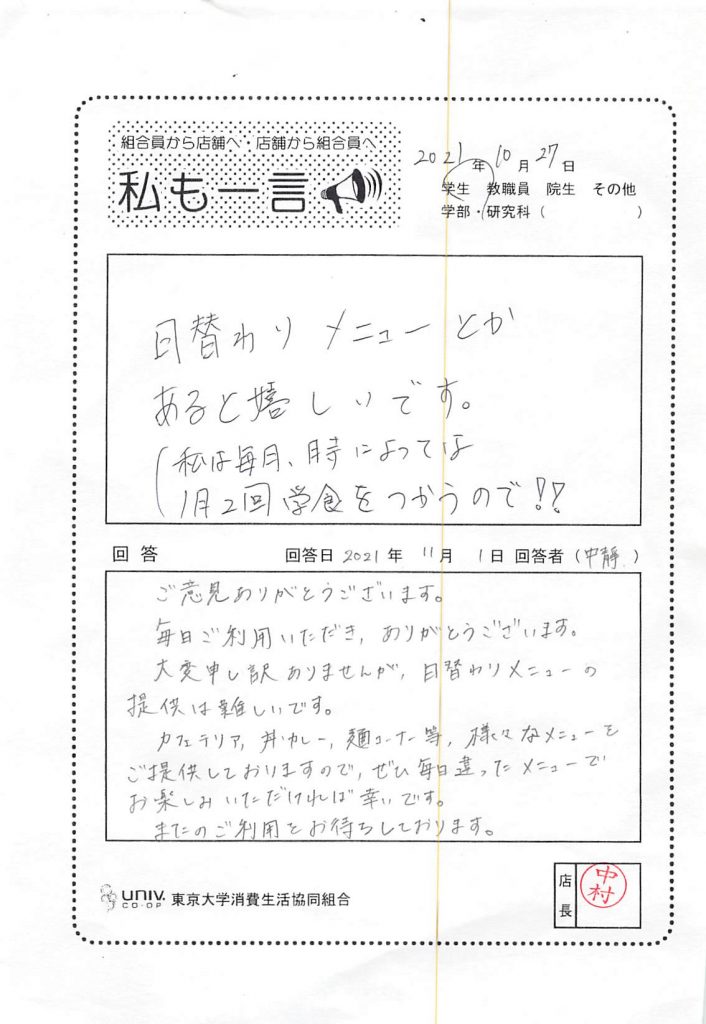 組合員から店舗へ・店舗から組合員へ
私も一言
2021年10月27日
学生 教職員 院生 その他
学部・研究科( )
日替わりメニューとか
あると嬉しいです。
(私は毎月、時によっては
1月2回学食をつかうので!!
回答 回答日 2021年 11月 1日 回答者(中靜)
ご意見ありがとうございます。
毎日ご利用いただき、ありがとうございます。
大変申し訳ありませんが、日替わりメニューの
提供は難しいです。
カフェテリア、丼カレー、麺コーナー等、様々なメニューを
ご提供しておりますので、ぜひ毎日違ったメニューで
お楽しみいただければ幸いです。
またのご利用をお待ちしております。
UNIV. CO-OP 東京大学消費生活協同組合
店長 中村